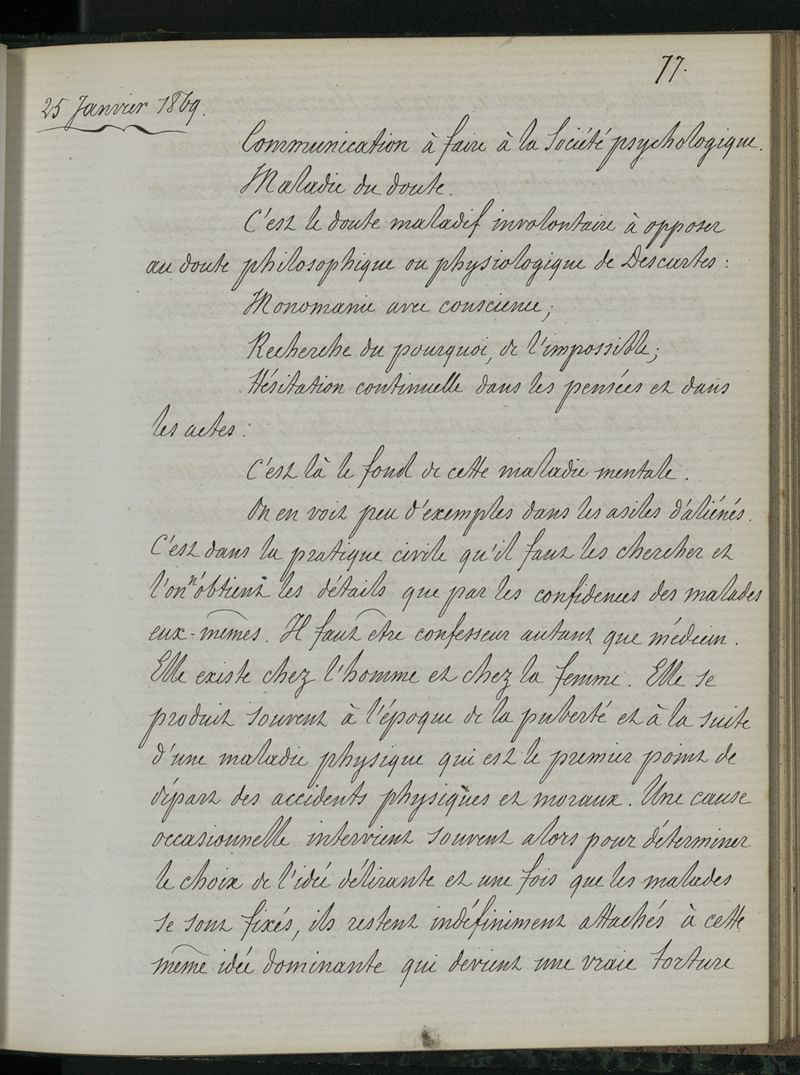 77.
25 Janvier 1869.
Communication à faire à la Société psychologique.
Maladie du doute.
C'est le doute maladif involontaire à opposer
au doute philosophique ou physiologique de Descartes :
Monomanie avec conscience ;
Recherche du pourquoi, de l'impossible ;
Hésitation continuelle dans les pensées et dans
les actes :
C'est là le fond de cette maladie mentale.
On en voit peu d'exemples dans les asiles d'aliénés.
C'est dans la pratique civile qu'il faut les chercher et
l'on n'obtient les détails que par les confidences des malades
eux-mêmes. Il faut être confesseur autant que médecin.
Elle existe chez l'homme et chez la femme. Elle se
produit souvent à l'époque de la puberté et à la suite
d'une maladie physique qui est le premier point de
départ des accidents physiques et moraux. Une cause
occasionnelle intervient souvent alors pour déterminer
le choix de l'idée délirante et une fois que les malades
se sont fixés, ils restent indéfiniment attachés à cette
même idée dominante qui devient une vraie torture